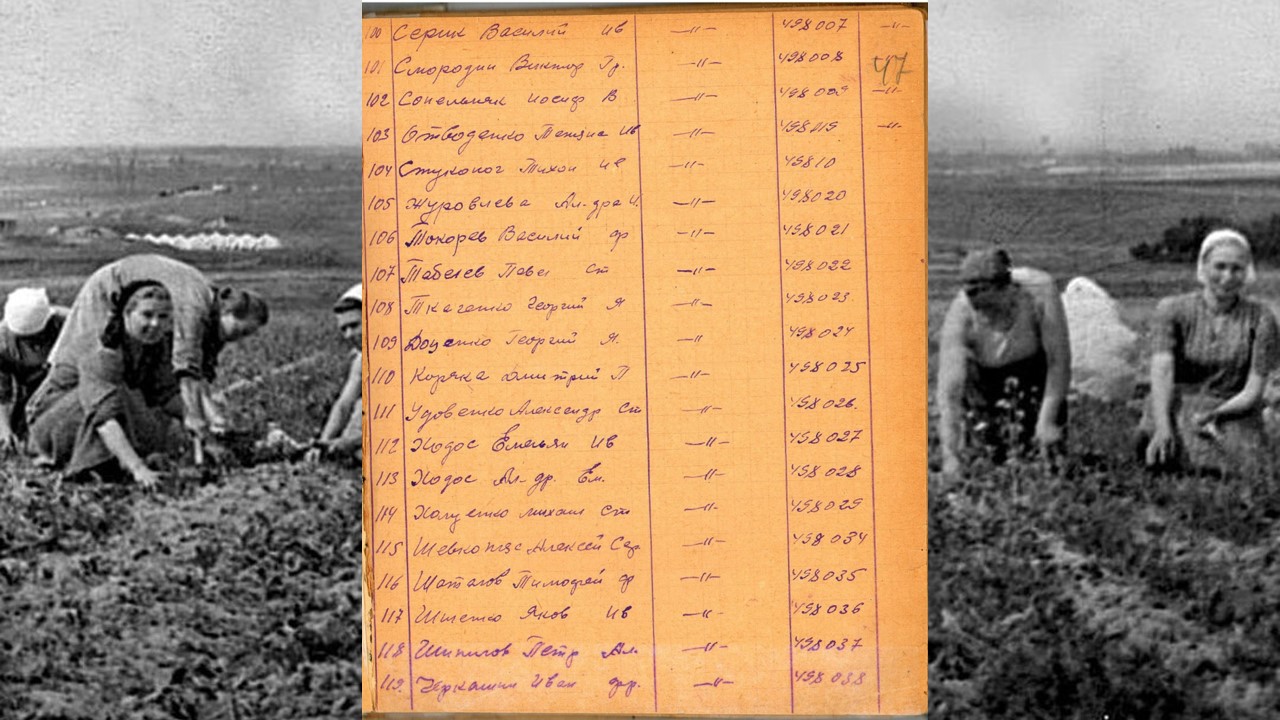 100 Серик Василий Ив —״— 498007 —״—
101 Смородин Виктор Гр. —״— 498008 47
102 Сопельняк Иосиф В —״— 498009 —״—
103 Отводенко Ив —״— 498019 —״—
104 Стуконог Тихон —״— 49810
105 Журовлева Ал-дра И. —״— 498020
106 Токорев Василий Ф —״— 498021
107 Павел Ст —״— 498022
108 Ткаченко Георгий Я —״— 498023
109 Доценко Георгий Я. —״ 498024
110 Коряка Дмитрий П —״— 498025
111 Удовенко Александр Ст —״— 498026.
112 Ходос Емельян Ив —״— 498027
113 Ходос Ал-др. Ем. —״— 498028
114 Михаил Ст —״— 498029
115 Алексей Сер —״— 498034
116 Шаталов Тимофей Ф —״— 498035
117 Яков Ив —״— 498036
118 Шипилов Петр Ал. —״— 498037
119. Черкашин Иван —״— 498038